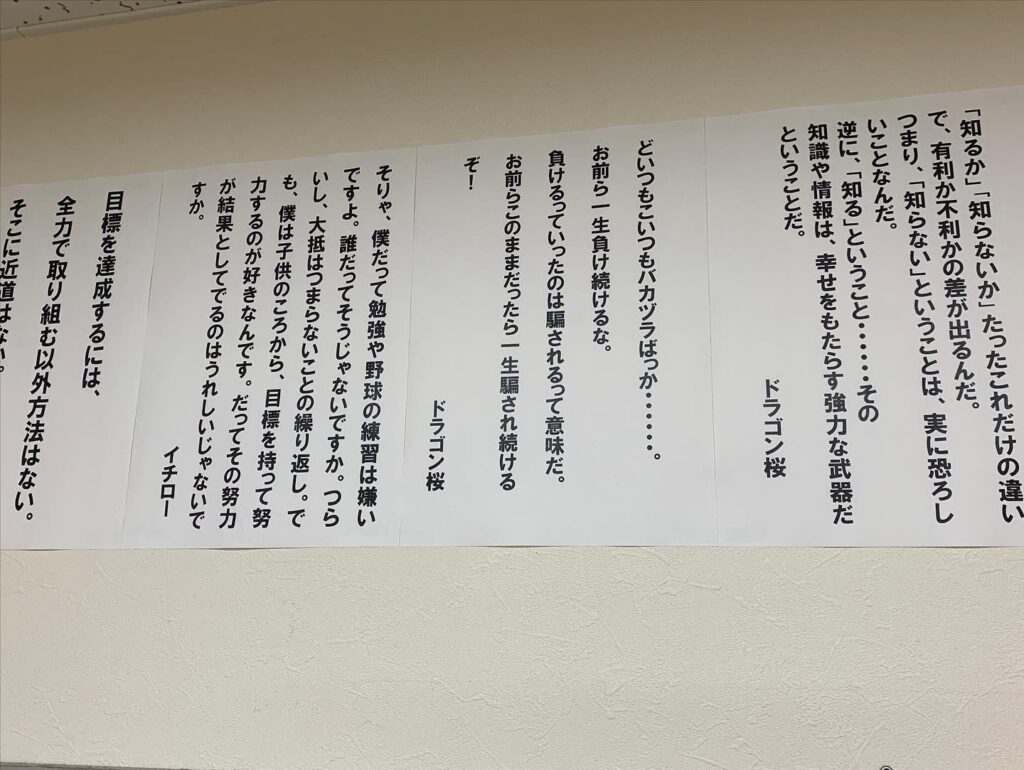 「知るか」「知らないか」たったこれだけの違い
で、有利か不利かの差が出るんだ。
つまり、「知らない」ということは、実に恐ろし
いことなんだ。
逆に、「知る」ということ・・・・・その
知識や情報は、幸せをもたらす強力な武器だ
ということだ。
ドラゴン桜
どいつもこいつもバカヅラばっか・・・・・・。
お前ら一生負け続けるな。
負けるっていったのは騙されるって意味だ。
お前らこのままだったら一生騙され続ける
ぞ！
ドラゴン桜
そりゃ、僕だって勉強や野球の練習は嫌い
ですよ。誰だってそうじゃないですか。つら
いし、大抵はつまらないことの繰り返し。で
も、僕は子供のころから、目標を持って努
力するのが好きなんです。だってその努力
が結果としてでるのはうれしいじゃないで
すか。
イチロー
目標を達成するには、
全力で取り組む以外方法はない。
そこに近道はない。